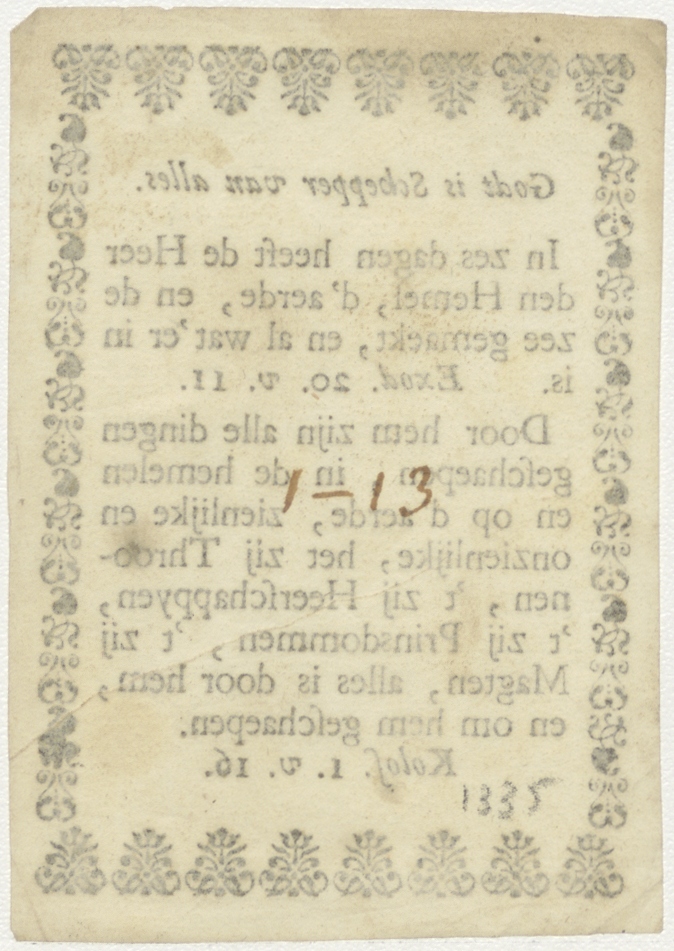 Godt is Schepper van alles.
In zes dagen heeft de Heer
den Hemel, d'aerde, en de
zee gemaekt, en al wat'er in
is. Exod. 20. v. 11.
Door hem zijn alle dingen
geſchaepen, in de hemelen
1-13
en op d'aerde, zienlijke en
onzienlijke, het zij Throo-
nen, 't zij Heerſchappyen,
't zij Prinsdommen, 't zij
Magten, alles is door hem,
en om hem geſchaepen.
Koloſ. 1. v. 16.